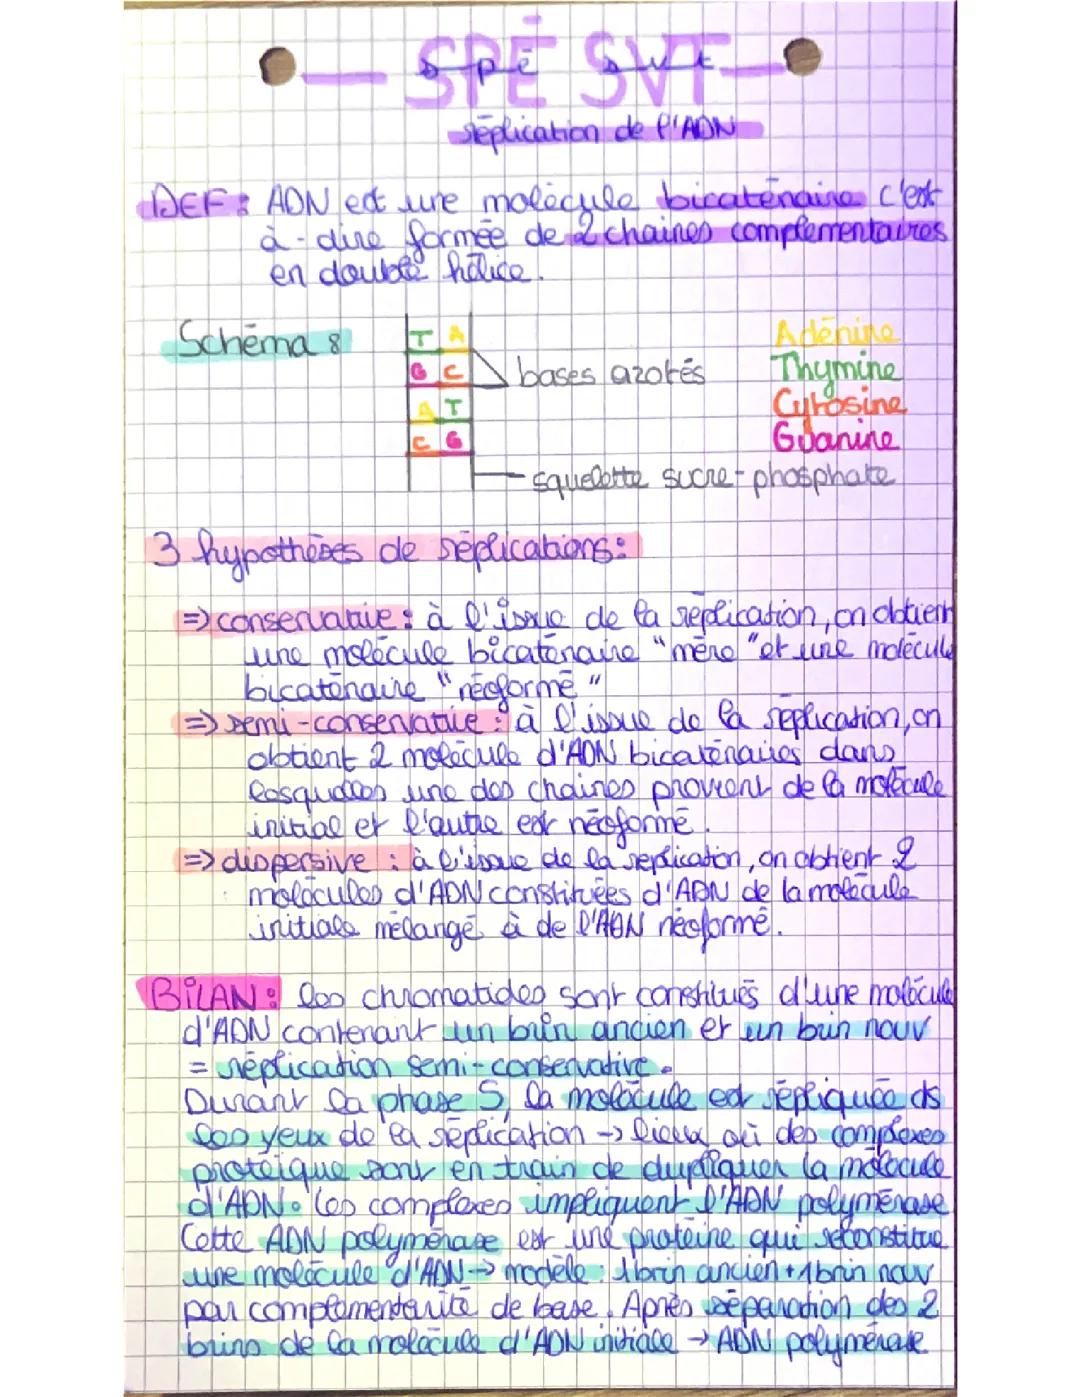 SPÉ SVT
spé svt
réplication de l'ADN
DEF: ADN est une molécule bicaténaire c'est
à-dire formée de 2 chaines complémentaires
en double hélice.
Schéma :
T A
G C
A T
C G
bases azotés
squelette sucre-phosphate
Adénine
Thymine
Cytosine
Guanine
3 hypothèses de réplications:
=> conservative : à l'issue de la réplication, on obtient
une molécule bicaténaire "mère" et une molécule
bicaténaire "néoformé"
=> semi-conservative : à l'issue de la réplication, on
obtient 2 molécule d'ADN bicaténaires dans
lesquelles une des chaines provient de la molécule
initial et l'autre est néoformé.
=> dispersive : à l'issue de la réplication, on obtient 2
molécules d'ADN constituées d'ADN de la molécule
initiale mélangé à de l'ADN néoformé.
BILAN: les chromatides sont constitués d'une molécule
d'ADN contenant un brin ancien et un brin nouv
= réplication semi-conservative.
Durant la phase S, la molécule est répliquée ds
les yeux de la réplication -> lieux où des complexes
protéique sont en train de dupliquer la molécule
d'ADN. Les complexes impliquent l'ADN polymérase
Cette ADN polymérase est une protéine qui reconstitue
une molécule d'ADN -> modèle : 1 brin ancien + 1 brin nouv
par complémentarité de base. Après séparation des 2
brins de la molécule d'ADN initiale -> ADN polymérase